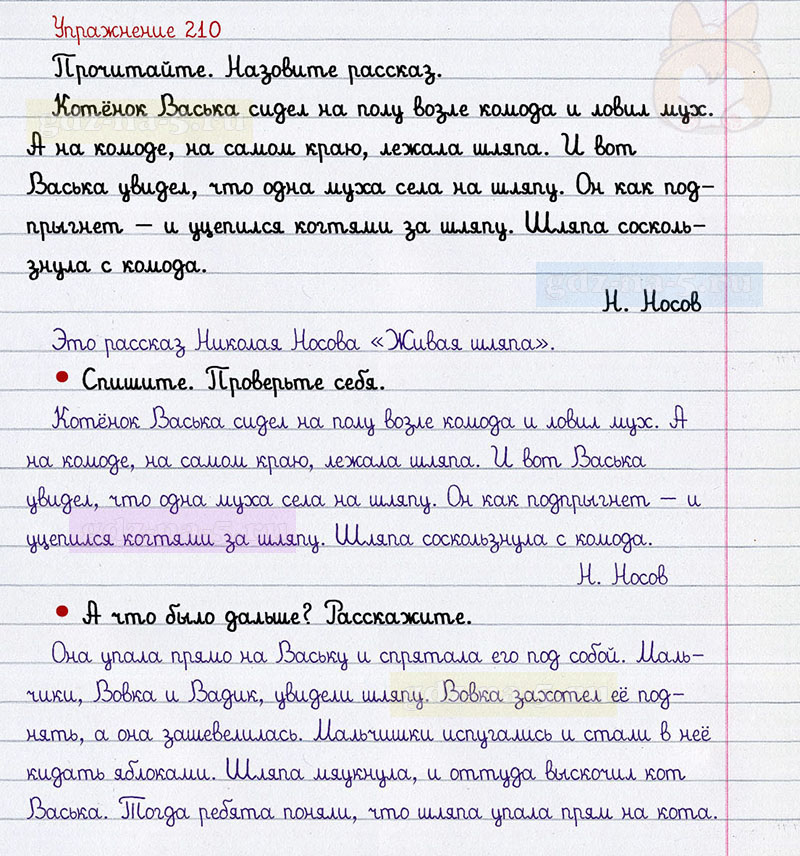 Упражнение 210
Прочитайте. Назовите рассказ.
Котёнок Васька сидел на полу возле комода и ловил мух.
А на комоде, на самом краю, лежала шляпа. И вот
Васька увидел, что одна муха села на шляпу. Он как под-
прыгнет — и уцепился когтями за шляпу. Шляпа сосколь-
знула с комода.
gdz-na-5.ru
Н. Носов
Это рассказ Николая Носова «Живая шляпа».
• Спишите. Проверьте себя.
Котёнок Васька сидел на полу возле комода и ловил мух. А
на комоде, на самом краю, лежала шляпа. И вот Васька
увидел, что одна муха села на шляпу. Он как подпрыгнет — и
уцепился когтями за шляпу. Шляпа соскользнула с комода.
Н. Носов
• А что было дальше? Расскажите.
Она упала прямо на Ваську и спрятала его под собой. Маль-
чики, Вовка и Вадик, увидели шляпу. Вовка захотел её под-
нять, а она зашевелилась. Мальчишки испугались и стали в неё
кидать яблоками. Шляпа мяукнула, и оттуда выскочил кот
Васька. Тогда ребята поняли, что шляпа упала прям на кота.